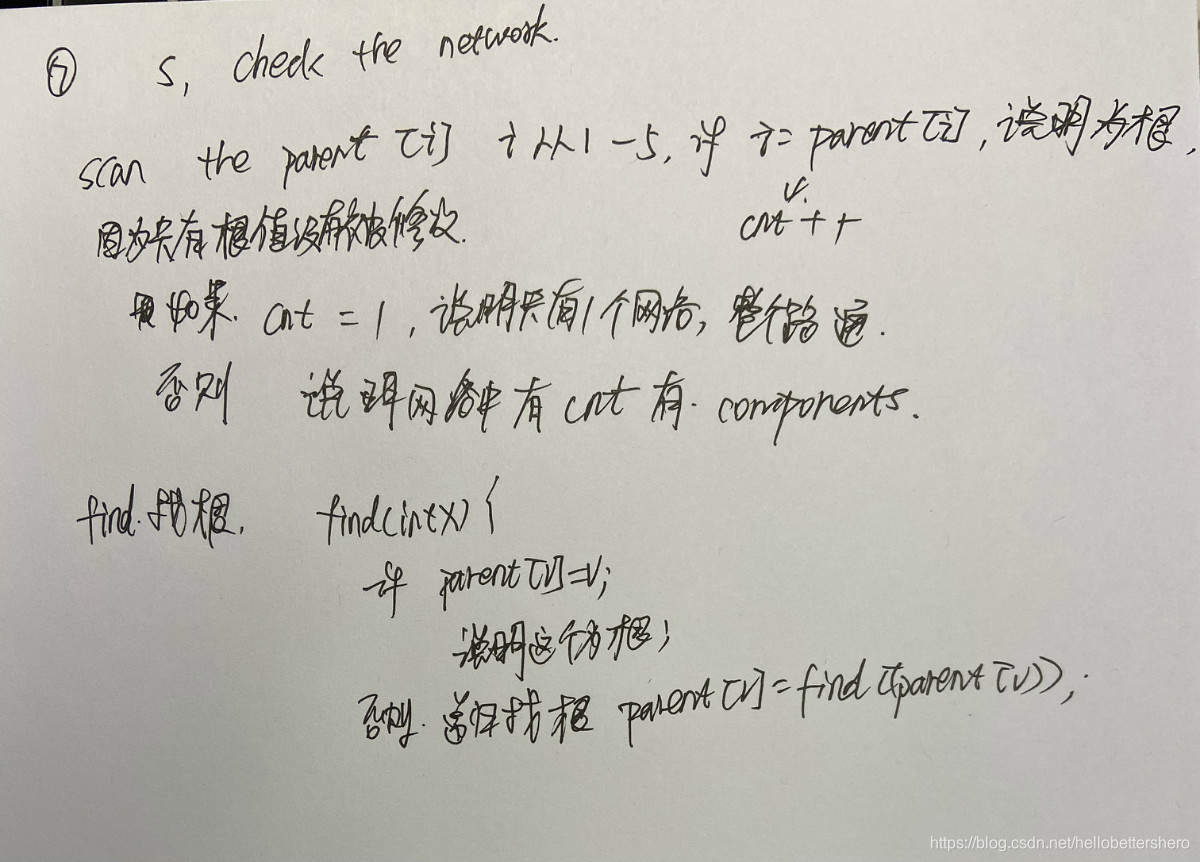 ⑦ S, check the network.
scan the parent [i] i从1-5, if i= parent[i], 说明为根,
cnt++
因为只有根值没有被修改.
如果. cnt = 1, 说明只有1个网络, 整个路通.
否则 说明网络中有cnt有. components.
find.找根. find(int x) {
if parent[v]=v;
说明这个为根;
否则. 递归找根 parent[v]=find[(parent[v]));
https://blog.csdn.net/hellobettershero